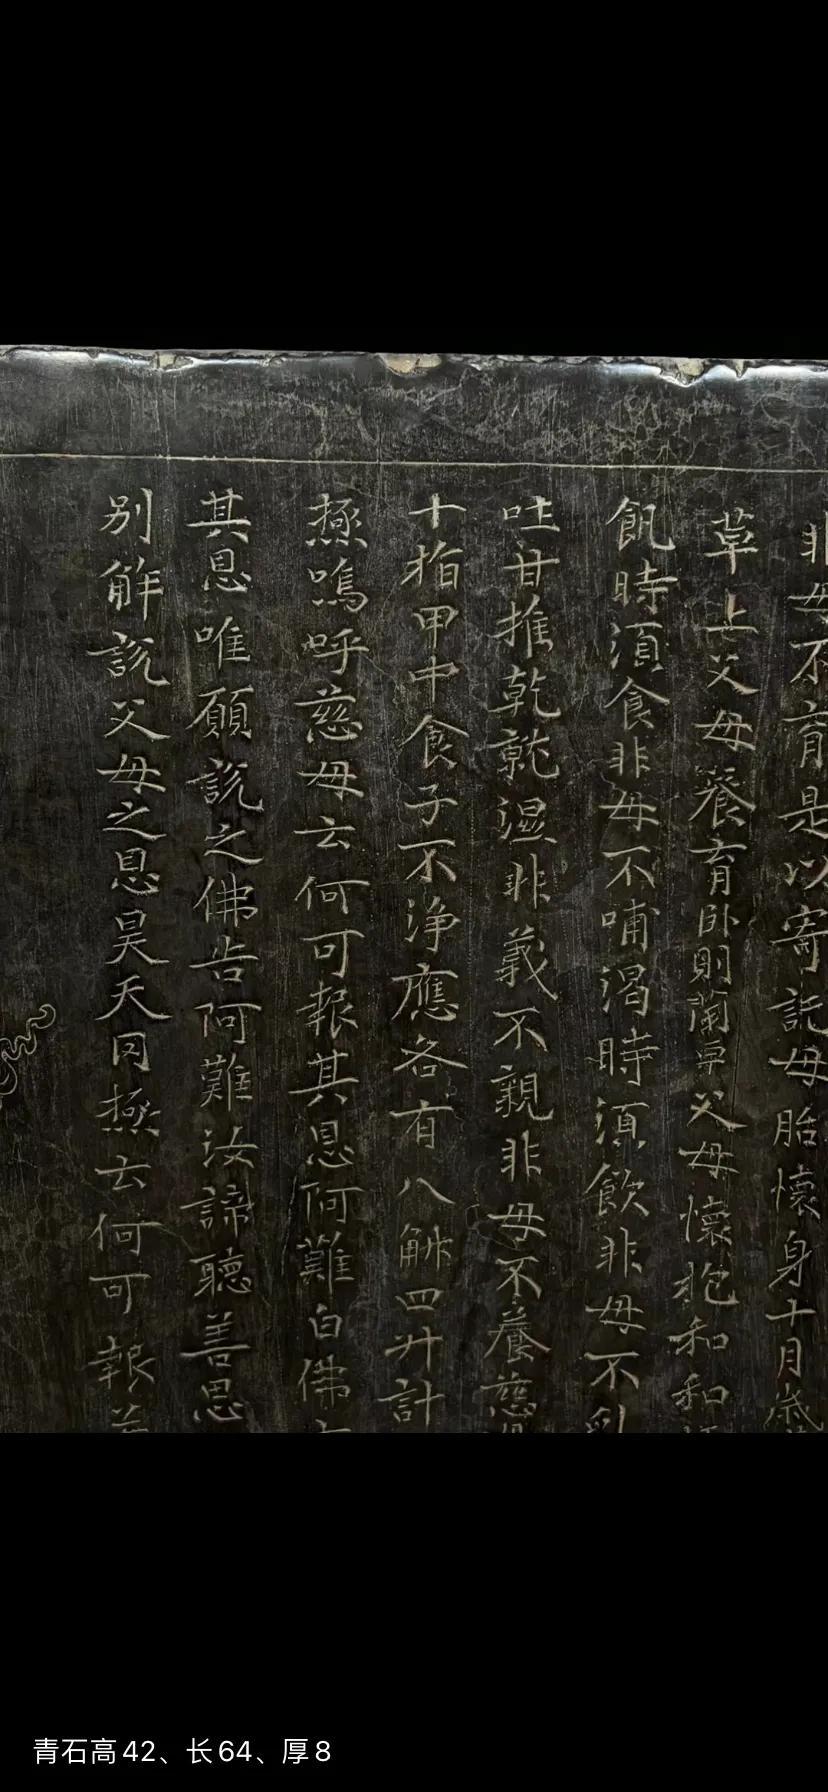 非母不育是以寄託母胎懷身十月歲
草上父母養育卧則蘭車父母懷抱和和
飢時湏食非母不哺渴時湏飲非母不乳
吐甘推乾就濕非義不親非母不養慈
十指甲中食子不净應各有八斛四升計
極嗚呼慈母云何可報其恩阿難白佛
其恩唯願説之佛告阿難汝諦聽善思
别解説父母之恩昊天罔極云何可報
青石高42、长64、厚8